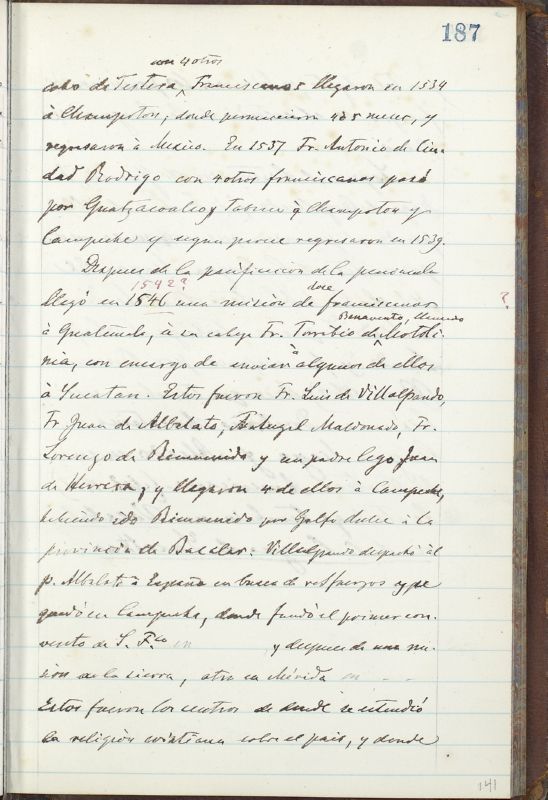 187
con 4 otros
cobo de Testera, Franciscanos llegaron en 1534
á Champoton, donde permanecieron 4 ó 5 meses, y
regresaron á Mexico. En 1537 Fr. Antonio de Ciu-
dad Rodrigo con 4 otros franciscanos pasó
por Guatzacoalco y Tabasco á Champoton y
Campeche y segun parece regresaron en 1539.
Despues de la pacificacion de la peninsula
1542? doce
llegó en 1546 una mision de franciscanos ?
Benavente, llamado
á Guatemala, á su cabeza Fr. Torribio de Motoli-
nia, con encargo de enviar á algunos de ellos
á Yucatan. Estos fueron Fr. Luis de Villalpando,
Fr Juan de Albalate, Fr Angel Maldonado, Fr.
Lorenzo de Bienvenida y un padre lego Juan
de Herrera, y llegaron 4 de ellos á Campeche,
habiendo ido Bienvenido por Golfo dulce á la
provincia de Bacalar. Villalpando despachó al
p. Albalate á España en busca de refuerzos y se
quedó en Campeche, donde fundó el primer con-
vento de S. Fco en y despues de una mi-
sion en la sierra, otro en Mérida en - -
Estos fueron los centros de donde se estendió
la religión cristiana sobre el pais, y donde
141